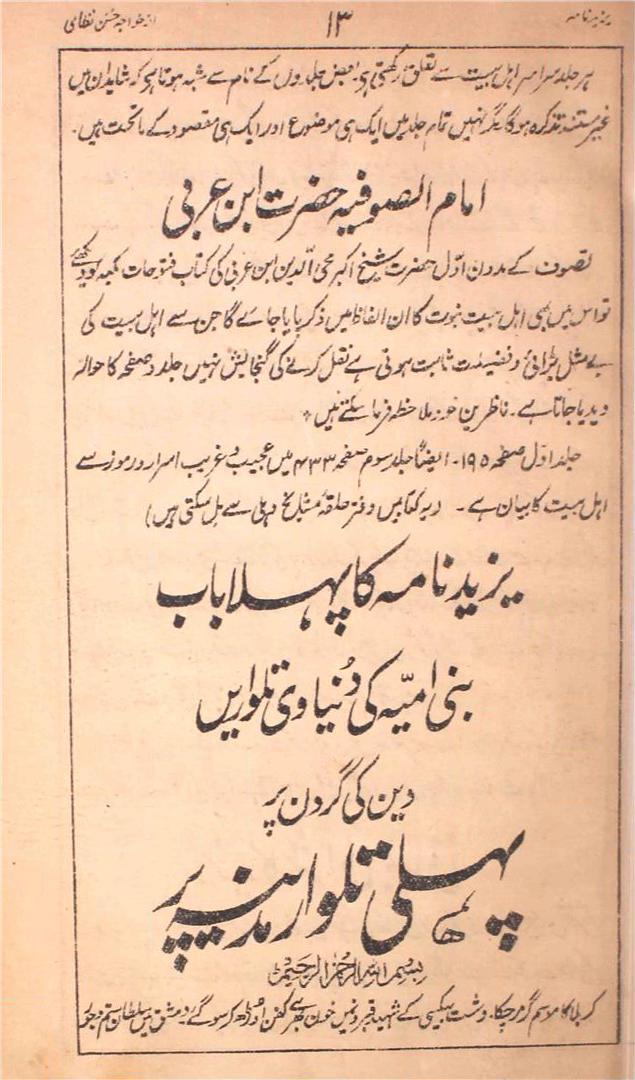 یزیدنامہ ۱۳ از خواجہ حسن نظامی
ہر جلد سراسر اہل بیت سے تعلق رکھتی ہی بعض جلدوں کے نام سے شبہ ہوتا ہی کہ شاید ان میں
غیر مستند تذکرہ ہوگا مگر نہیں تمام جلدیں ایک ہی موضوع اور ایک ہی مقصود کے ماتحت ہیں۔
امام الصوفیہ حضرت ابن عربی
تصوف کے مدون اوّل حضرت شیخ اکبر محی الدین ابن عربی کی کتاب فتوحات مکیہ کو دیکھئے
تو اس میں بھی اہل بیت نبوت کا ان الفاظ میں ذکر پایا جائے گا جن سے اہل بیت کی
بے مثل بڑائی و فضیلت ثابت ہوتی ہے نقل کرنے کی گنجایش نہیں جلد و صفحہ کا حوالہ
دیدیا جاتا ہے۔ ناظرین خود ملاحظہ فرما سکتے ہیں
جلد اوّل صفحہ ۱۹۵۔ ایضاً جلد سوم صفحہ ۴۳۳ میں عجیب و غریب اسرار و رموز سے
اہل بیت کا بیان ہے۔ (یہ کتابیں دفتر حلقۂ مشایخ دہلی سے مل سکتی ہیں)
یزید نامہ کا پہلا باب
بنی امیّہ کی دُنیاوی تلواریں
دین کی گردن پر
پہلی تلوار مدینہ پر
بسم اللہ الرحمٰن الرحیم
کربلا کا موسم گزر چکا۔ دشت بیکسی کے شہید قبرونمیں خون بھرے کفن اوڑھ کر سو گئے۔ دمشق میں سلطان ستم و جور